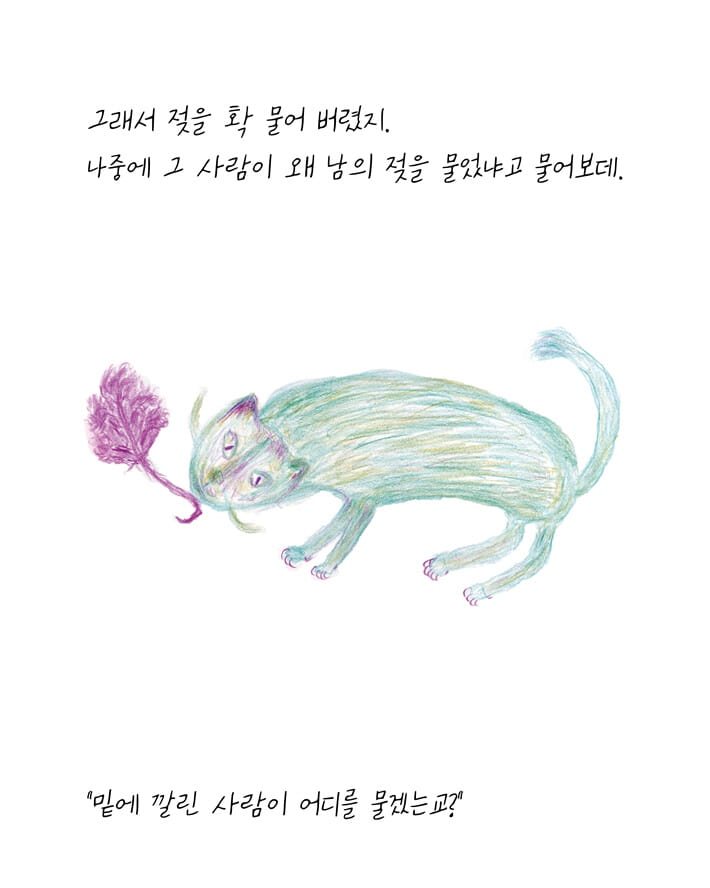 그래서 젖을 확 물어 버렸지.
나중에 그 사람이 왜 남의 젖을 물었냐고 물어보데.
"밑에 깔린 사람이 어디를 물겠는교?"